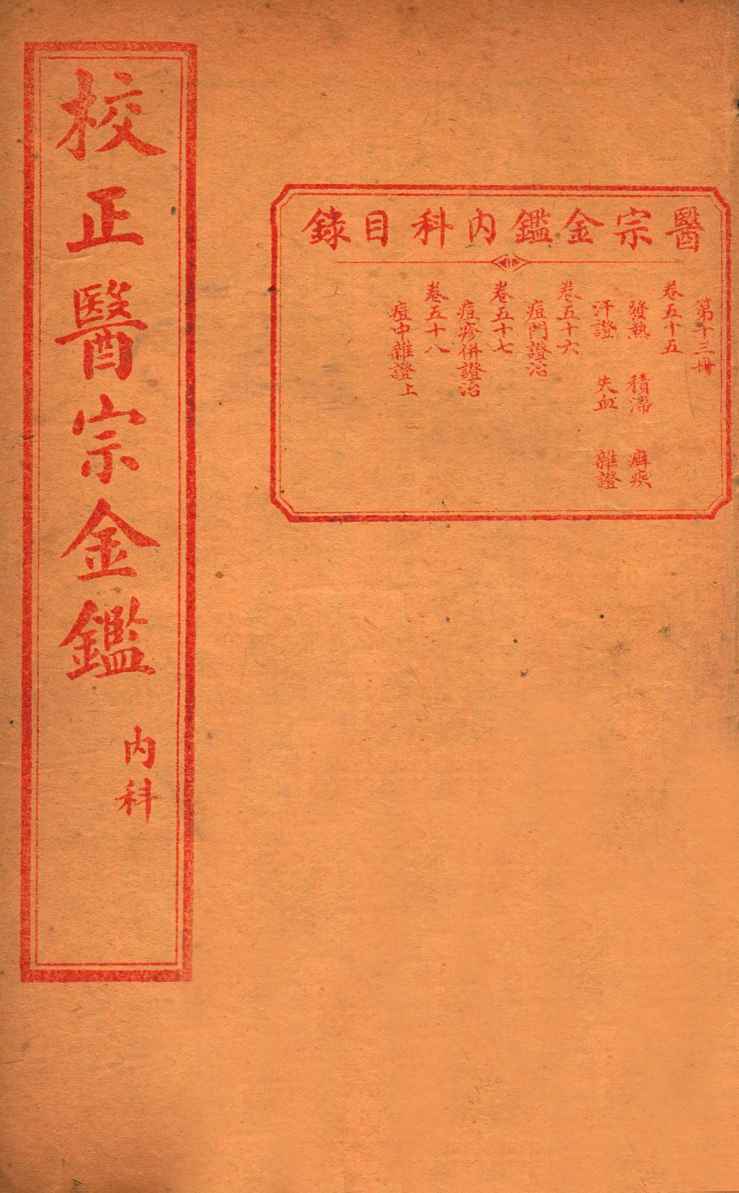 醫宗金鑑內科目錄
第十三冊
卷五十五
發熱 積滯 癖疾
汗證 失血 雜證
卷五十六
痘門證治
卷五十七
痘疹併證治
卷五十八
痘中雜證上
校正醫宗金鑑 內科